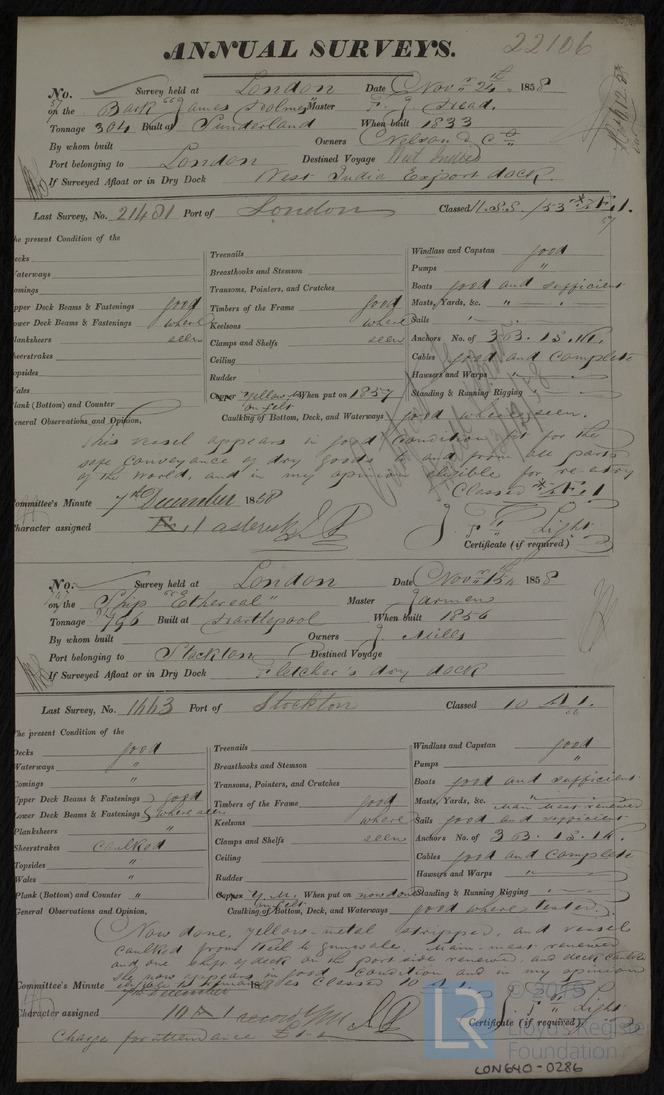 ANNUAL SURVEYS. 22106
No. Survey held at London Date Nov 24th 1858
on the Bark "James Holmes" Master Head.
Tonnage 304 Built at Sunderland When built 1833
By whom built Owners Nelson & Co
Port belonging to London Destined Voyage West Indies
If Surveyed Afloat or in Dry Dock West India Export dock.
Last Survey, No. 21481 Port of London Classed
The present Condition of the
Decks
Waterways
Comings
Upper Deck Beams & Fastenings good
Lower Deck Beams & Fastenings where
Planksheers seen
Sheerstrakes
Topsides
Wales
Plank (Bottom) and Counter
Treenails
Breasthooks and Stemson
Transoms, Pointers, and Crutches
Timbers of the Frame good
Keelsons where
Clamps and Shelfs seen
Ceiling
Rudder
Copper Yellow M on felt When put on 1857
Windlass and Capstan good
Pumps "
Boats good and sufficient
Masts, Yards, &c. " "
Sails
Anchors No. of 3 B. 1 S. 1 K.
Cables good and complete
Hawsers and Warps "
Standing & Running Rigging
Caulking of Bottom, Deck, and Waterways good where seen.
General Observations and Opinion,
This vessel appears in good condition fit for the
safe conveyance of dry goods to and from all parts
of the World, and in my opinion eligible for re-entry
Classed
Committee's Minute 7th December 1858
Character assigned asterisk
Light
Certificate (if required)
No. Survey held at London Date Nov 15th 1858
on the Ship "Ethereal" Master Jarmen
Tonnage 796 Built at Hartlepool When built 1856
By whom built Owners J Mills
Port belonging to Stockton Destined Voyage
If Surveyed Afloat or in Dry Dock Fletcher's dry dock
Last Survey, No. 1663 Port of Stockton Classed 10 A 1.
The present Condition of the
Decks good
Waterways "
Comings "
Upper Deck Beams & Fastenings good
Lower Deck Beams & Fastenings where seen
Planksheers "
Sheerstrakes Caulked
Topsides "
Wales "
Plank (Bottom) and Counter "
Treenails
Breasthooks and Stemson
Transoms, Pointers, and Crutches
Timbers of the Frame good
Keelsons where
Clamps and Shelfs seen
Ceiling
Rudder
Copper Y. M. on felt When put on now done
Windlass and Capstan good
Pumps "
Boats good and sufficient
Masts, Yards, &c. " Main Mast renewed
Sails good and sufficient
Anchors No. of 3 B. 1 S. 1 K.
Cables good and complete
Hawsers and Warps "
Standing & Running Rigging
Caulking of Bottom, Deck, and Waterways good where tested.
General Observations and Opinion,
Now done, yellow-metal stripped, and vessel
caulked from keel to gunwale, Main-mast renewed
and one of deck on the port side renewed, and deck caulked
She now appears in good condition and in my opinion
eligible to remain as Classed 10 A 1
Committee's Minute 7th December 1858
Character assigned 10 A 1
Light
Certificate (if required)
Charge for attendance
© 2019
LR
Lloyd's Register
Foundation
LON640-0286